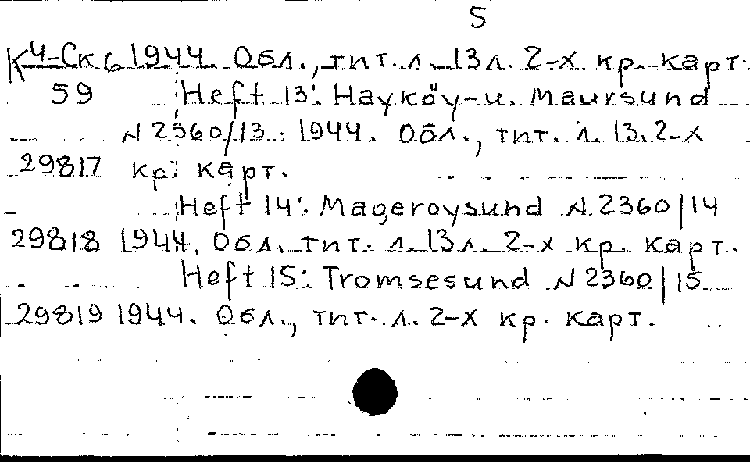 5
К4-Ск6 1944. Обл., тит. л. 13л. 2-х кр. карт.
59 Heft 13: Hayköy-u. Maursund
N 2360/13. 1944. Обл., тит. л. 13. 2-х
29817 кр. карт.
Heft 14: Mageroysund N 2360/14
29818 1944. Обл. тит. л. 13л. 2-х кр. карт.
Heft 15: Tromsesund N 2360/15
29819 1944. Обл., тит. л. 2-х кр. карт.